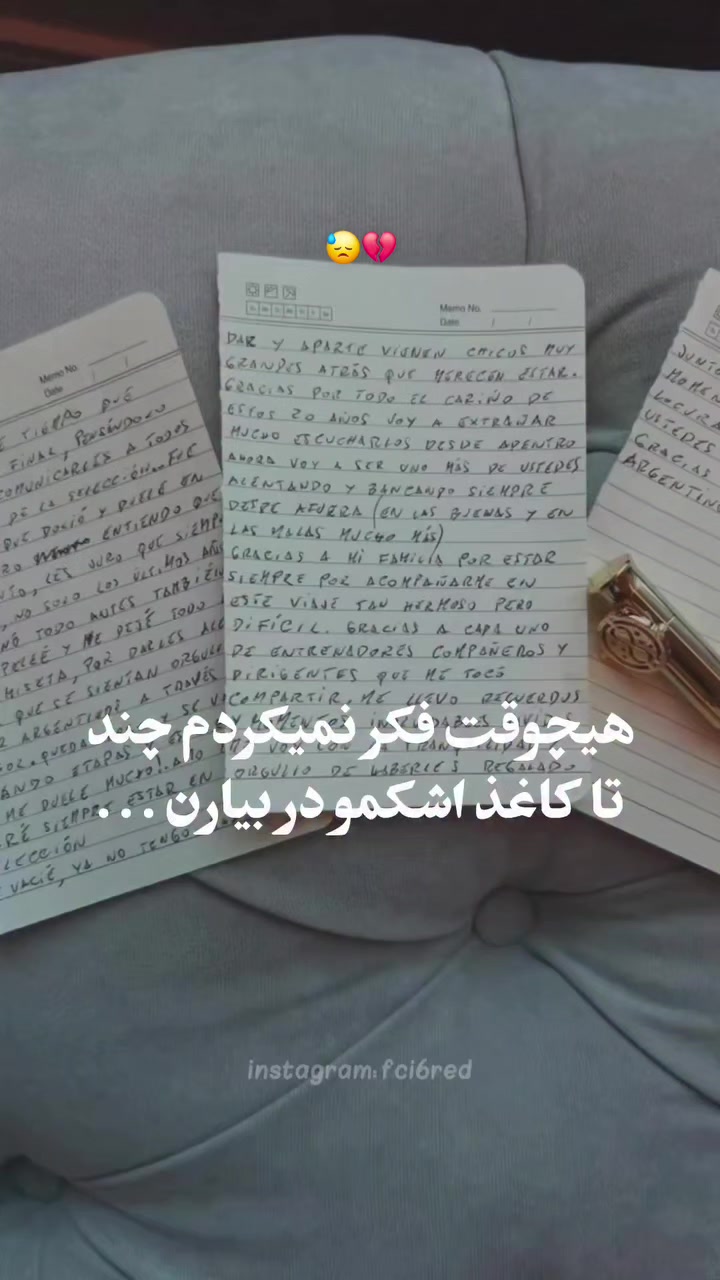 😓💔
Memo No.
Date
E TIEMPO QUE
FINAL, PENSÁNDOLO
COMUNICARLES A TODOS
DE LA SELECCIÓN. FUE
QUE DOLIÓ Y DUELE EN
ENTIENDO QUE
LES JURO QUE SIEMP
NO SOLO LOS ÚLTIMOS AÑO
TODO ANTES TAMBIÉN
PELEÉ Y ME DEJÉ TODO
MISETA, POR DARLES ALE
QUE SE SIENTAN ORGULL
ARGENTINOS A TRAVÉS
QUEDA Y SE V
ANDO ETAPAS Y
ME DUELE MUCHO!
RÉ SIEMPRE ESTAR EN
LECCIÓN
VACIÉ, YA NO TENGO
Memo No.
Date
DAR Y APARTE VIENEN CHICOS MUY
GRANDES ATRÁS QUE MERECEN ESTAR.
GRACIAS POR TODO EL CARIÑO DE
ESTOS 20 AÑOS VOY A EXTRAÑAR
MUCHO ESCUCHARLOS DESDE ADENTRO
AHORA VOY A SER UNO MÁS DE USTEDES
ALENTANDO Y BANCANDO SIEMPRE
DESDE AFUERA (EN LAS BUENAS Y EN
LAS MALAS MUCHO MÁS)
GRACIAS A MI FAMILIA POR ESTAR
SIEMPRE POR ACOMPAÑARME EN
ESTE VIAJE TAN HERMOSO PERO
DIFÍCIL. GRACIAS A CADA UNO
DE ENTRENADORES COMPAÑEROS Y
DIRIGENTES QUE ME TOCÓ
COMPARTIR. ME LLEVO RECUERDOS
Y MOMENTOS
ME VOY CON LA
ORGULLO DE HABERLES REGALADO
JUNTO
MOMEN
LOCURA
USTEDES
GRACIAS
ARGENTIN
هیچوقت فکر نمیکردم چند
تا کاغذ اشکمو در بیارن . . .
instagram:fci6red